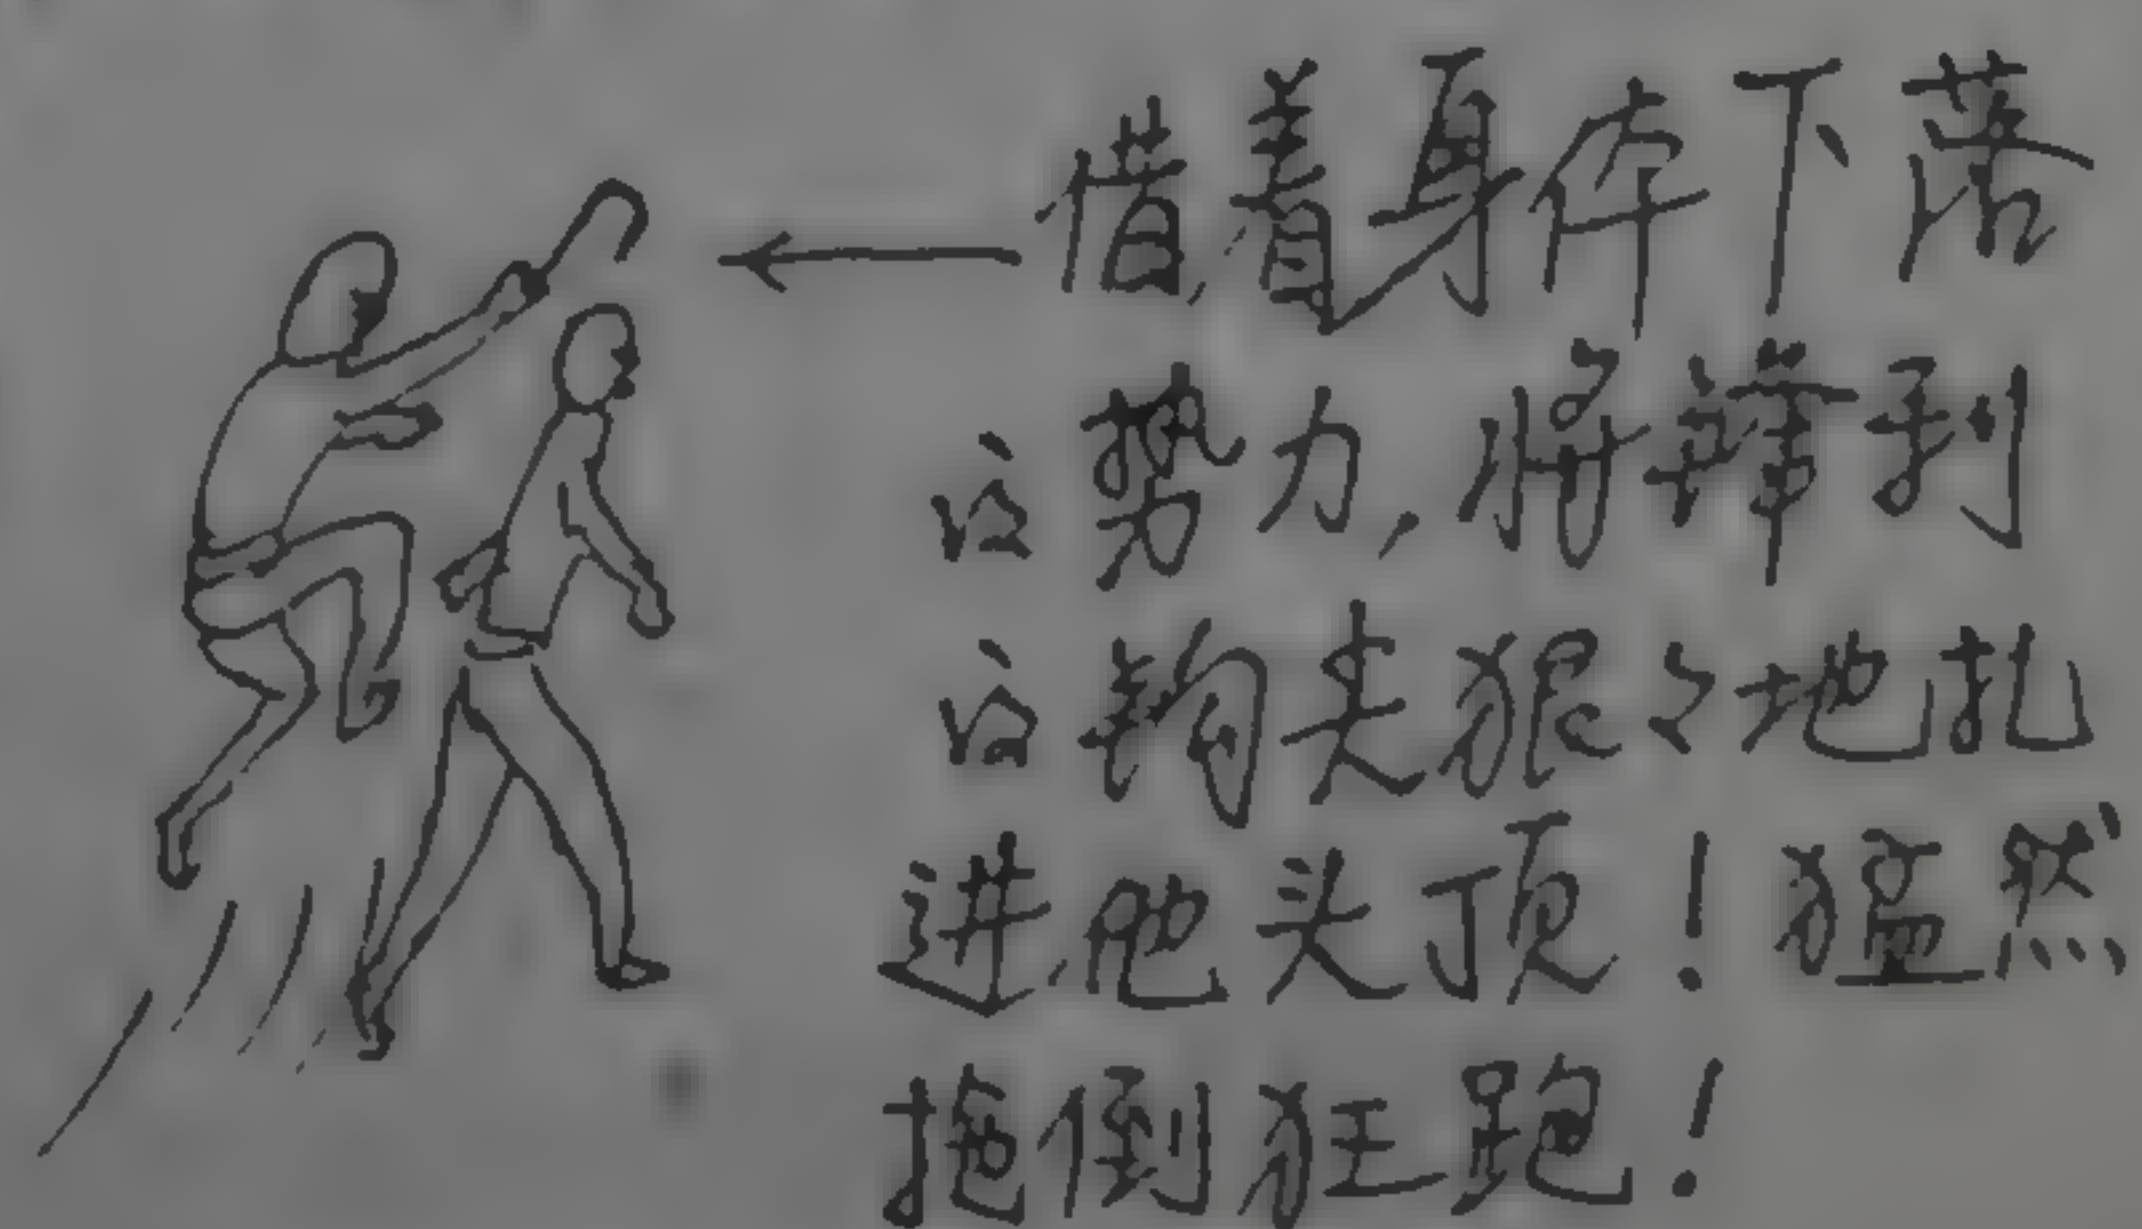 借着身体下落
的势力，将锋利
的钩尖狠々地扎
进他头顶！猛然
拖倒狂跑！